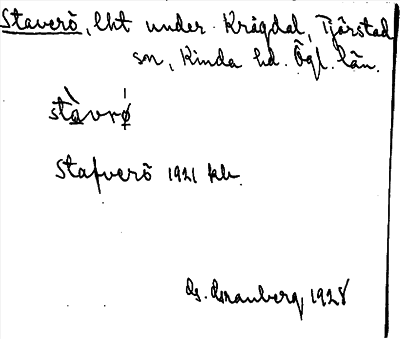 Staverö, lht under Krågdal, Tjärstad
sn, Kinda hd. Ögl. län.
stàvrǿ
Stafverö 1921 kb.
1928